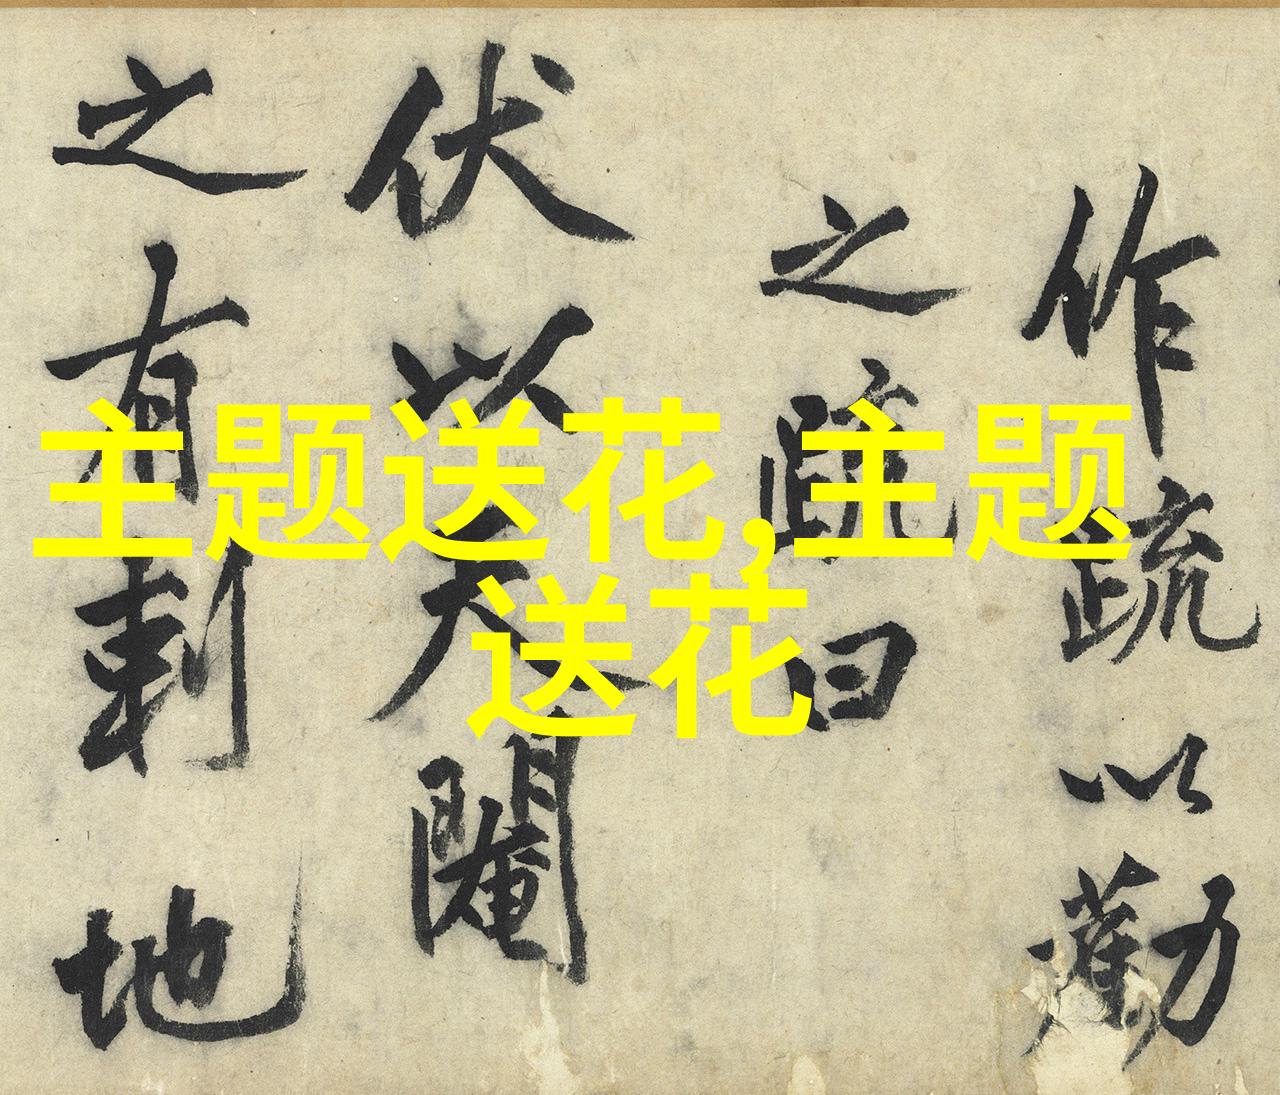 作疏以勸
之疏曰
伏以天閹
之有刺地
主题送花,主题
送花